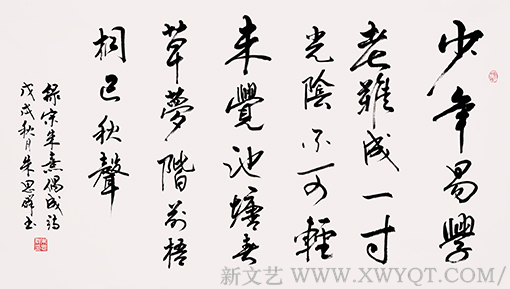 少年易學
老難成一寸
光陰不可輕
未覺池塘春
草夢階前梧
桐已秋聲
錄宋朱熹偶成詩
戊戌秋月朱書
新文艺 WWW.XWYQT.COM